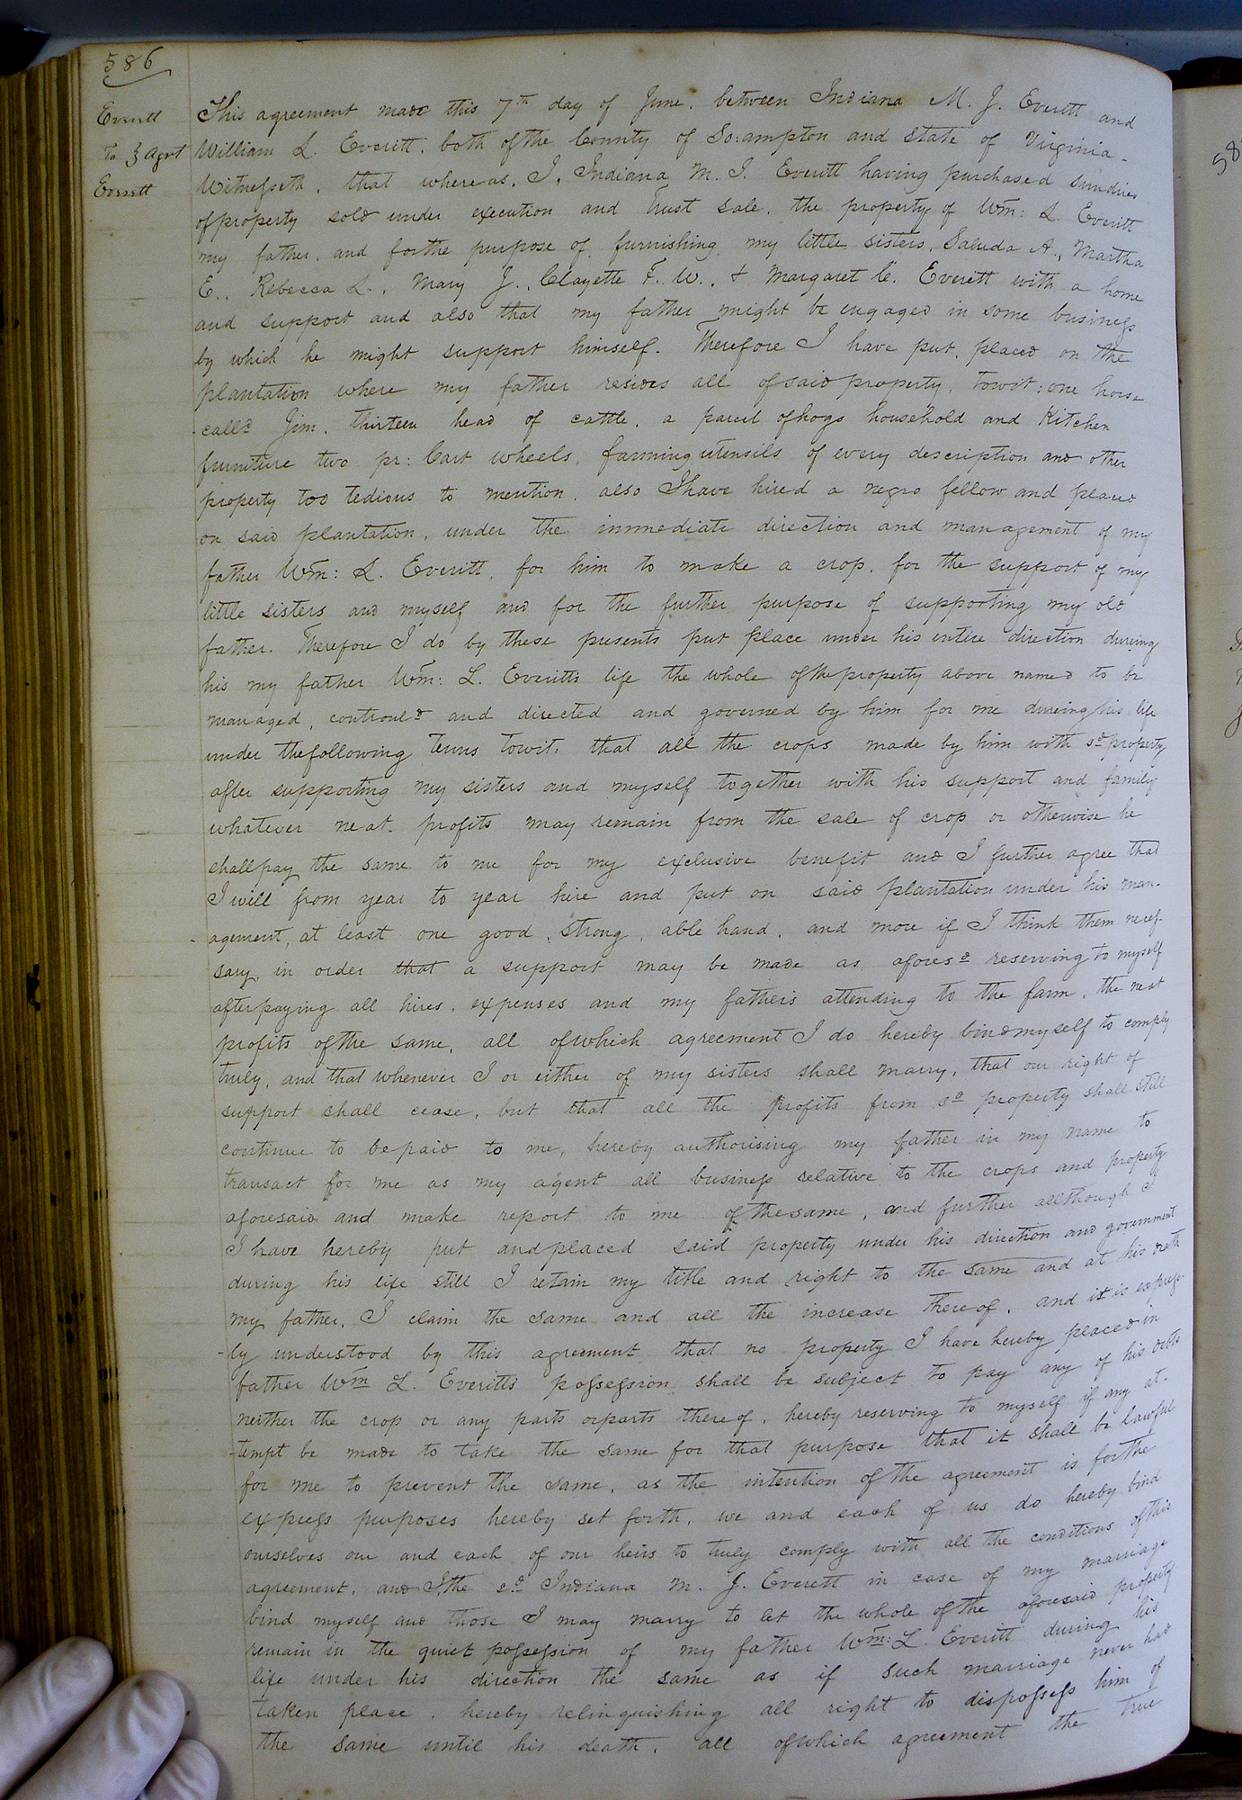 586
Everitt
to } Agrt
Everitt
This agreement made this 7th day of June. between Indiana M. J. Everitt and
William L. Everitt. both of the County of So:ampton and State of Virginia -
Witnesseth, that whereas, I, Indiana M. J. Everitt having purchased sundries
of property sold under execution and Trust sale. the property of Wm: L. Everitt
my father. and for the purpose of furnishing my little sisters, Saluda A., Martha
E., Rebecca L., Mary J., Clayette F. W., & Margaret C. Everitt with a home
and support and also that my father might be engaged in some business
by which he might support himself. Therefore I have put, placed on the
plantation where my father resides all of said property, towit: one horse
-calld Jim, thirteen head of cattle, a parcel of hogs household and Kitchen
furniture two pr: Cart wheels, farming utensils of every description and other
property too tedious to mention, also I have hired a negro fellow and placed
on said plantation, under the immediate direction and management of my
father Wm: L. Everitt, for him to make a crop, for the support of my
little sisters and myself and for the further purpose of supporting my old
father. Therefore I do by these presents put place under his entire direction dureing
his my father Wm: L. Everitts life the whole of the property above named to be
managed, controuled and directed and governed by him for me dureing his life
under the following terms towit, that all the crops made by him with sd property
after supporting my sisters and myself together with his support and family
whatever neat profits may remain from the sale of crop or otherwise he
shall pay the same to me for my exclusive benefit and I further agree that
I will from year to year hire and put on said plantation under his man-
-agement, at least one good, strong, able hand, and more if I think them neces-
sary in order that a support may be made as aforesd reserving to myself
after paying all hires, expenses and my father's attending to the farm, the neat
profits of the same, all of which agreement I do hereby bind myself to comply
truly, and that whenever I or either of my sisters shall marry, that our right of
support shall cease, but that all the profits from sd property shall still
continue to be paid to me, hereby authorising my father in my name to
transact for me as my agent all business relative to the crops and property
aforesaid and make report to me of the same, and further allthough I
I have hereby put and placed said property under his direction and government
during his life still I retain my title and right to the same and at his death
my father, I claim the same and all the increase thereof, and it is express-
-ly understood by this agreement that no property I have hereby placed in
father Wm L. Everitts possession shall be subject to pay any of his debts
neither the crop or any parts or parts thereof, hereby reserving to myself if any at-
-tempt be made to take the same for that purpose that it shall be lawful
for me to prevent the same, as the intention of the agreement is for the
express purposes hereby set forth, we and each of us do hereby bind
ourselves our and each of our heirs to truly comply with all the conditions of this
agreement, and I, the sd Indiana M. J. Everitt in case of my marriage
bind myself and those I may marry to let the whole of the aforesaid property
remain in the quiet possession of my father Wm: L. Everitt during his
life under his direction the same as if such marriage never had
taken place, hereby relinquishing all right to dispossess him of
the same until his death, all of which agreement the true